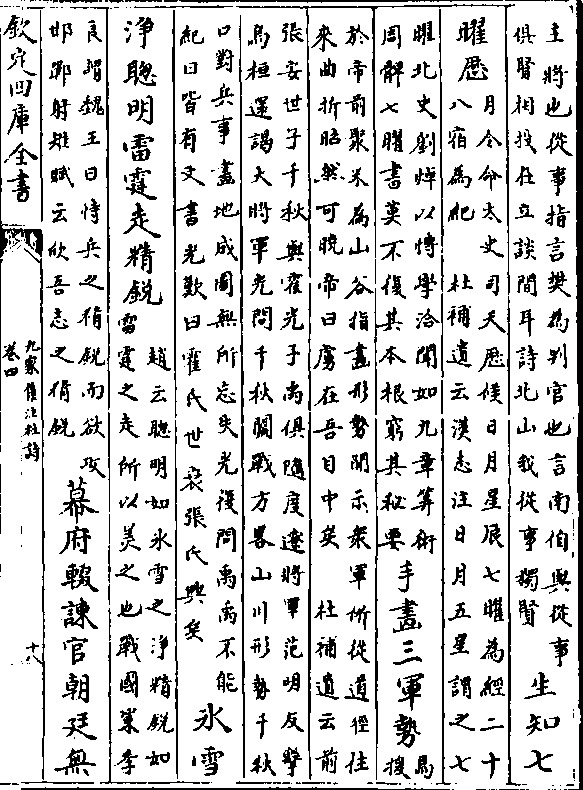 主將也從事指言樊為判官也言南伯與從事
俱賢相投在立談間耳詩北山我從事獨賢
生知七
曜歷
月令命太史司天歷候日月星辰七曜為經二十
八宿為紀 杜補遺云漢志注日月五星謂之七
曜北史劉焯以博學洽聞如九章算術
周髀七曜書莫不復其本根窮其秘要
手畫三軍勢
馬
援
於帝前聚米為山谷指畫形勢開示衆軍所從道徑往
來曲折昭然可曉帝曰虜在吾目中矣 杜補遺云前
張安世子千秋與霍光子禹俱隨度遼將軍范明友擊
烏桓還謁大將軍光問千秋鬬戰方畧山川形勢千秋
口對兵事畫地成圖無所忘失光復問禹禹不能
紀曰皆有文書光歎曰霍氏世衰張氏興矣
氷雪
淨聰明雷霆走精銳
趙云聰明如氷雪之淨精銳如
雷霆之走所以美之也戰國策李
良謂魏王曰恃兵之精銳而欲攻
邯鄲射雉賦云欣吾志之精銳
幕府輟諫官朝廷無
欽定四庫全書
九家集注杜詩
卷四
十八